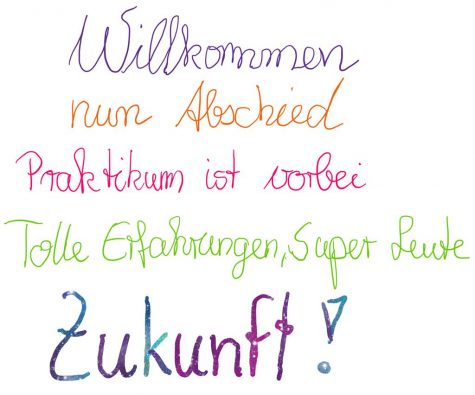 Willkommen
nun Abschied
Praktikum ist vorbei
Tolle Erfahrungen, Super Leute
Zukunft!